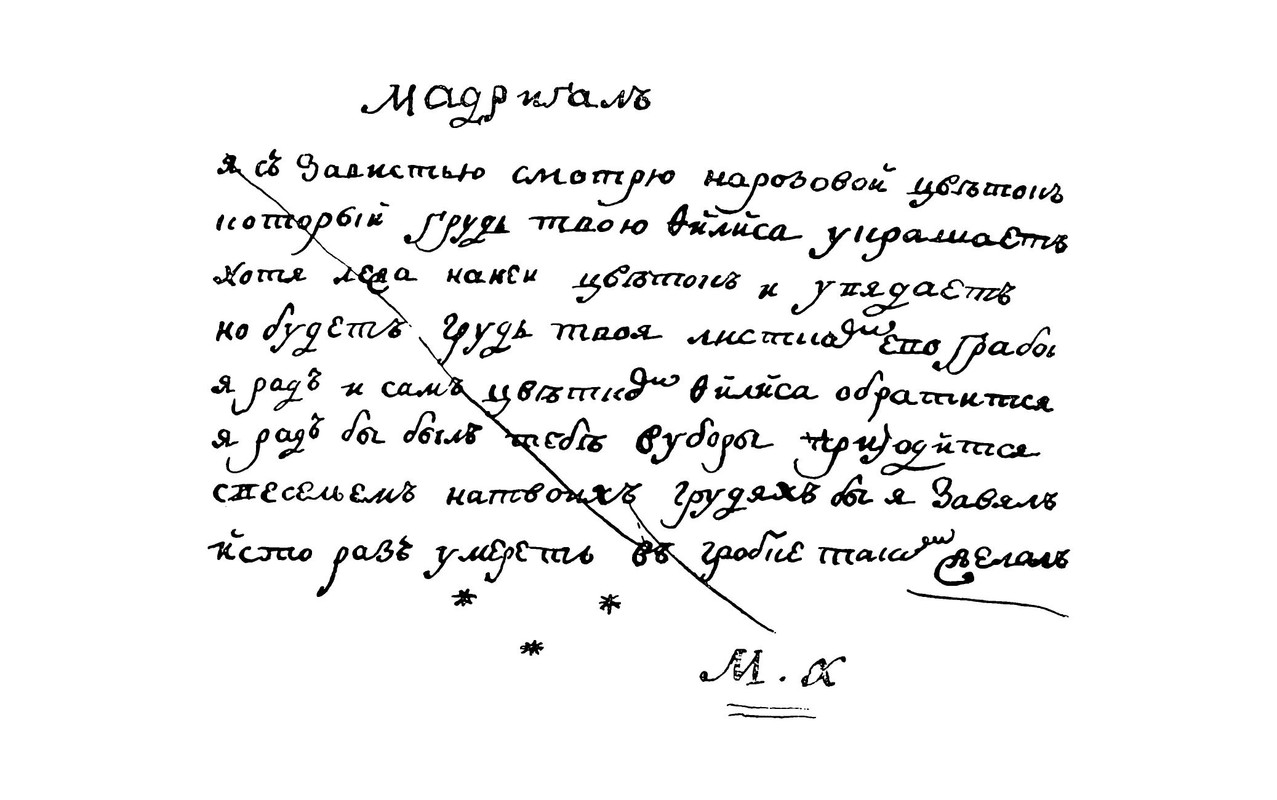 Мадригалъ
я съ Завистью смотрю нарозовой цвѣтокъ
который грудь твою Ѳйлйса украшаетъ
хотя лежа наней цвѣтокъ и увядаетъ
но будетъ грудь твоя листкю его гробо
я радъ и самъ цвѣткю Ѳйлйса обратитися
я радъ бы былъ тебѣ вуборы пригодйтся
свесельемъ натвоихъ грудяхъ бы я Завялъ
йсто разъ умереть въ гробѣ такю желалъ
* * *
М. К